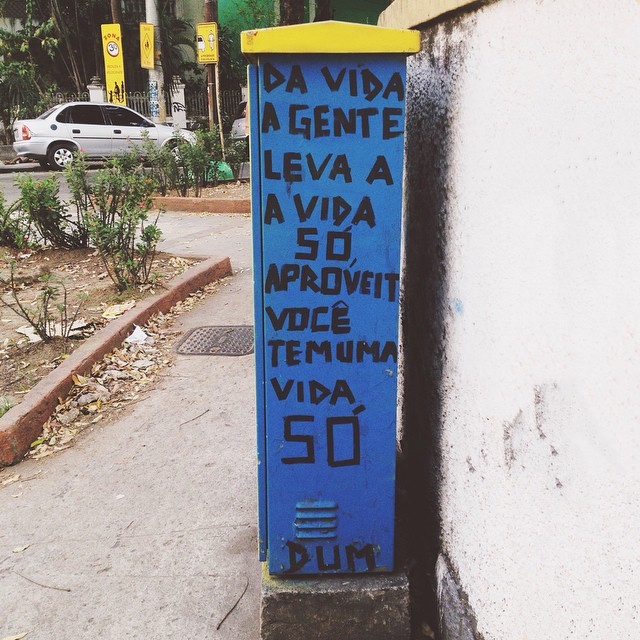 DA VIDA
A GENTE
LEVA A
A VIDA
SÓ,
APROVEIT
VOCÊ
TEM UMA
VIDA
SÓ
DUM
ZONA